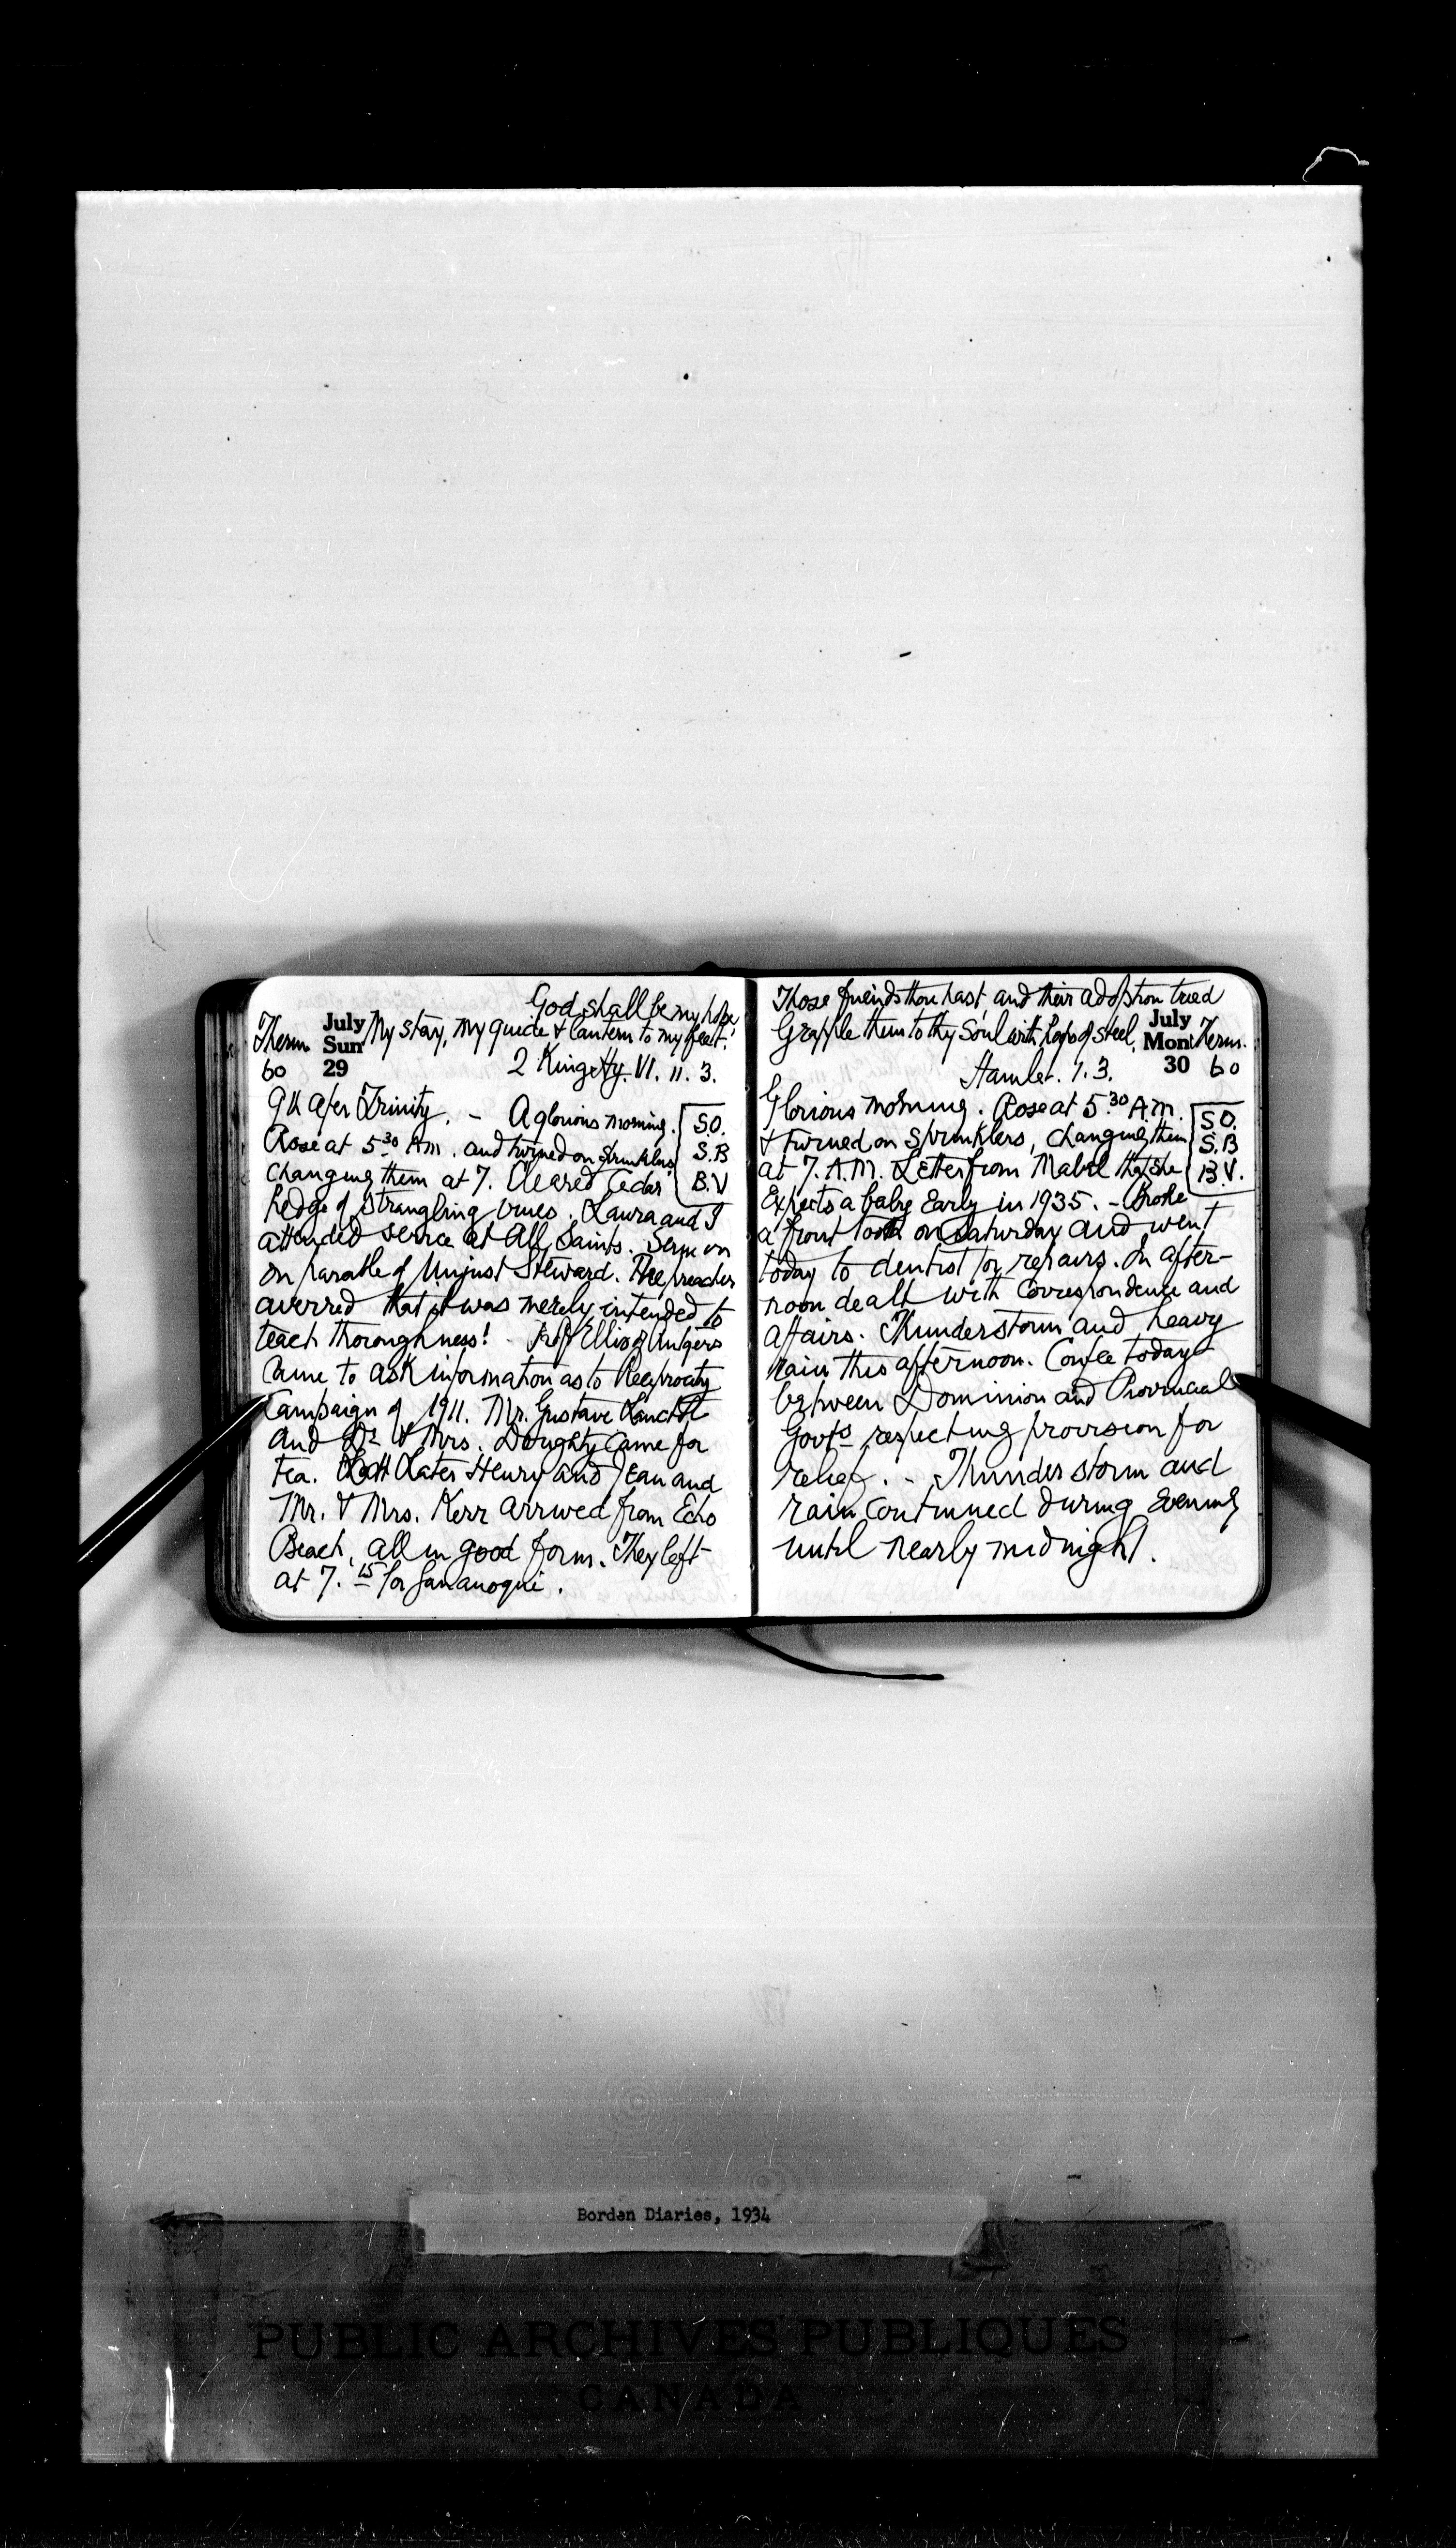 God shall be my hope
My stay, my guide & lantern to my feet.
Therm July Sun 29
60
2 King Hy. VI. 11. 3.
9th after Trinity. - A glorious morning. S.O.
Rose at 5.30 A.m. and turned on Sprinklers S.B
changing them at 7. Cleared Cedar B.V
hedge of strangling vines. Laura and I
attended service at All Saints. Sermon
on parable of Unjust Steward. The preacher
averred that it was merely intended to
teach thoroughness! - Prof Ellis of Rutgers
came to ask information as to Reciprocity
Campaign of 1911. Mr. Gustave Lanctôt
and Dr. & Mrs. Doughty came for
tea. Later Henry and Jean and
Mr. & Mrs. Kerr arrived from Echo
Beach, all in good form. They left
at 7.15 for Gananoqui.
Those friends thou hast, and their adoption tried
Grapple them to thy Soul with hoops of steel.
July Mon 30 Therm.
60
Hamlet. 1. 3.
Glorious morning. Rose at 5.30 A.m. S.O.
& turned on Sprinklers, changing them S.B
at 7. A.M. Letter from Mabel that she B.V.
expects a baby early in 1935. - Broke
a front tooth on Saturday and went
today to dentist for repairs. In after-
noon dealt with Correspondence and
affairs. Thunderstorm and heavy
rain this afternoon. Confce today
between Dominion and Provincial
Govts respecting provision for
relief. - Thunder storm and
rain continued during Evening
until nearly midnight.
Borden Diaries, 1934
PUBLIC ARCHIVES PUBLIQUES
CANADA